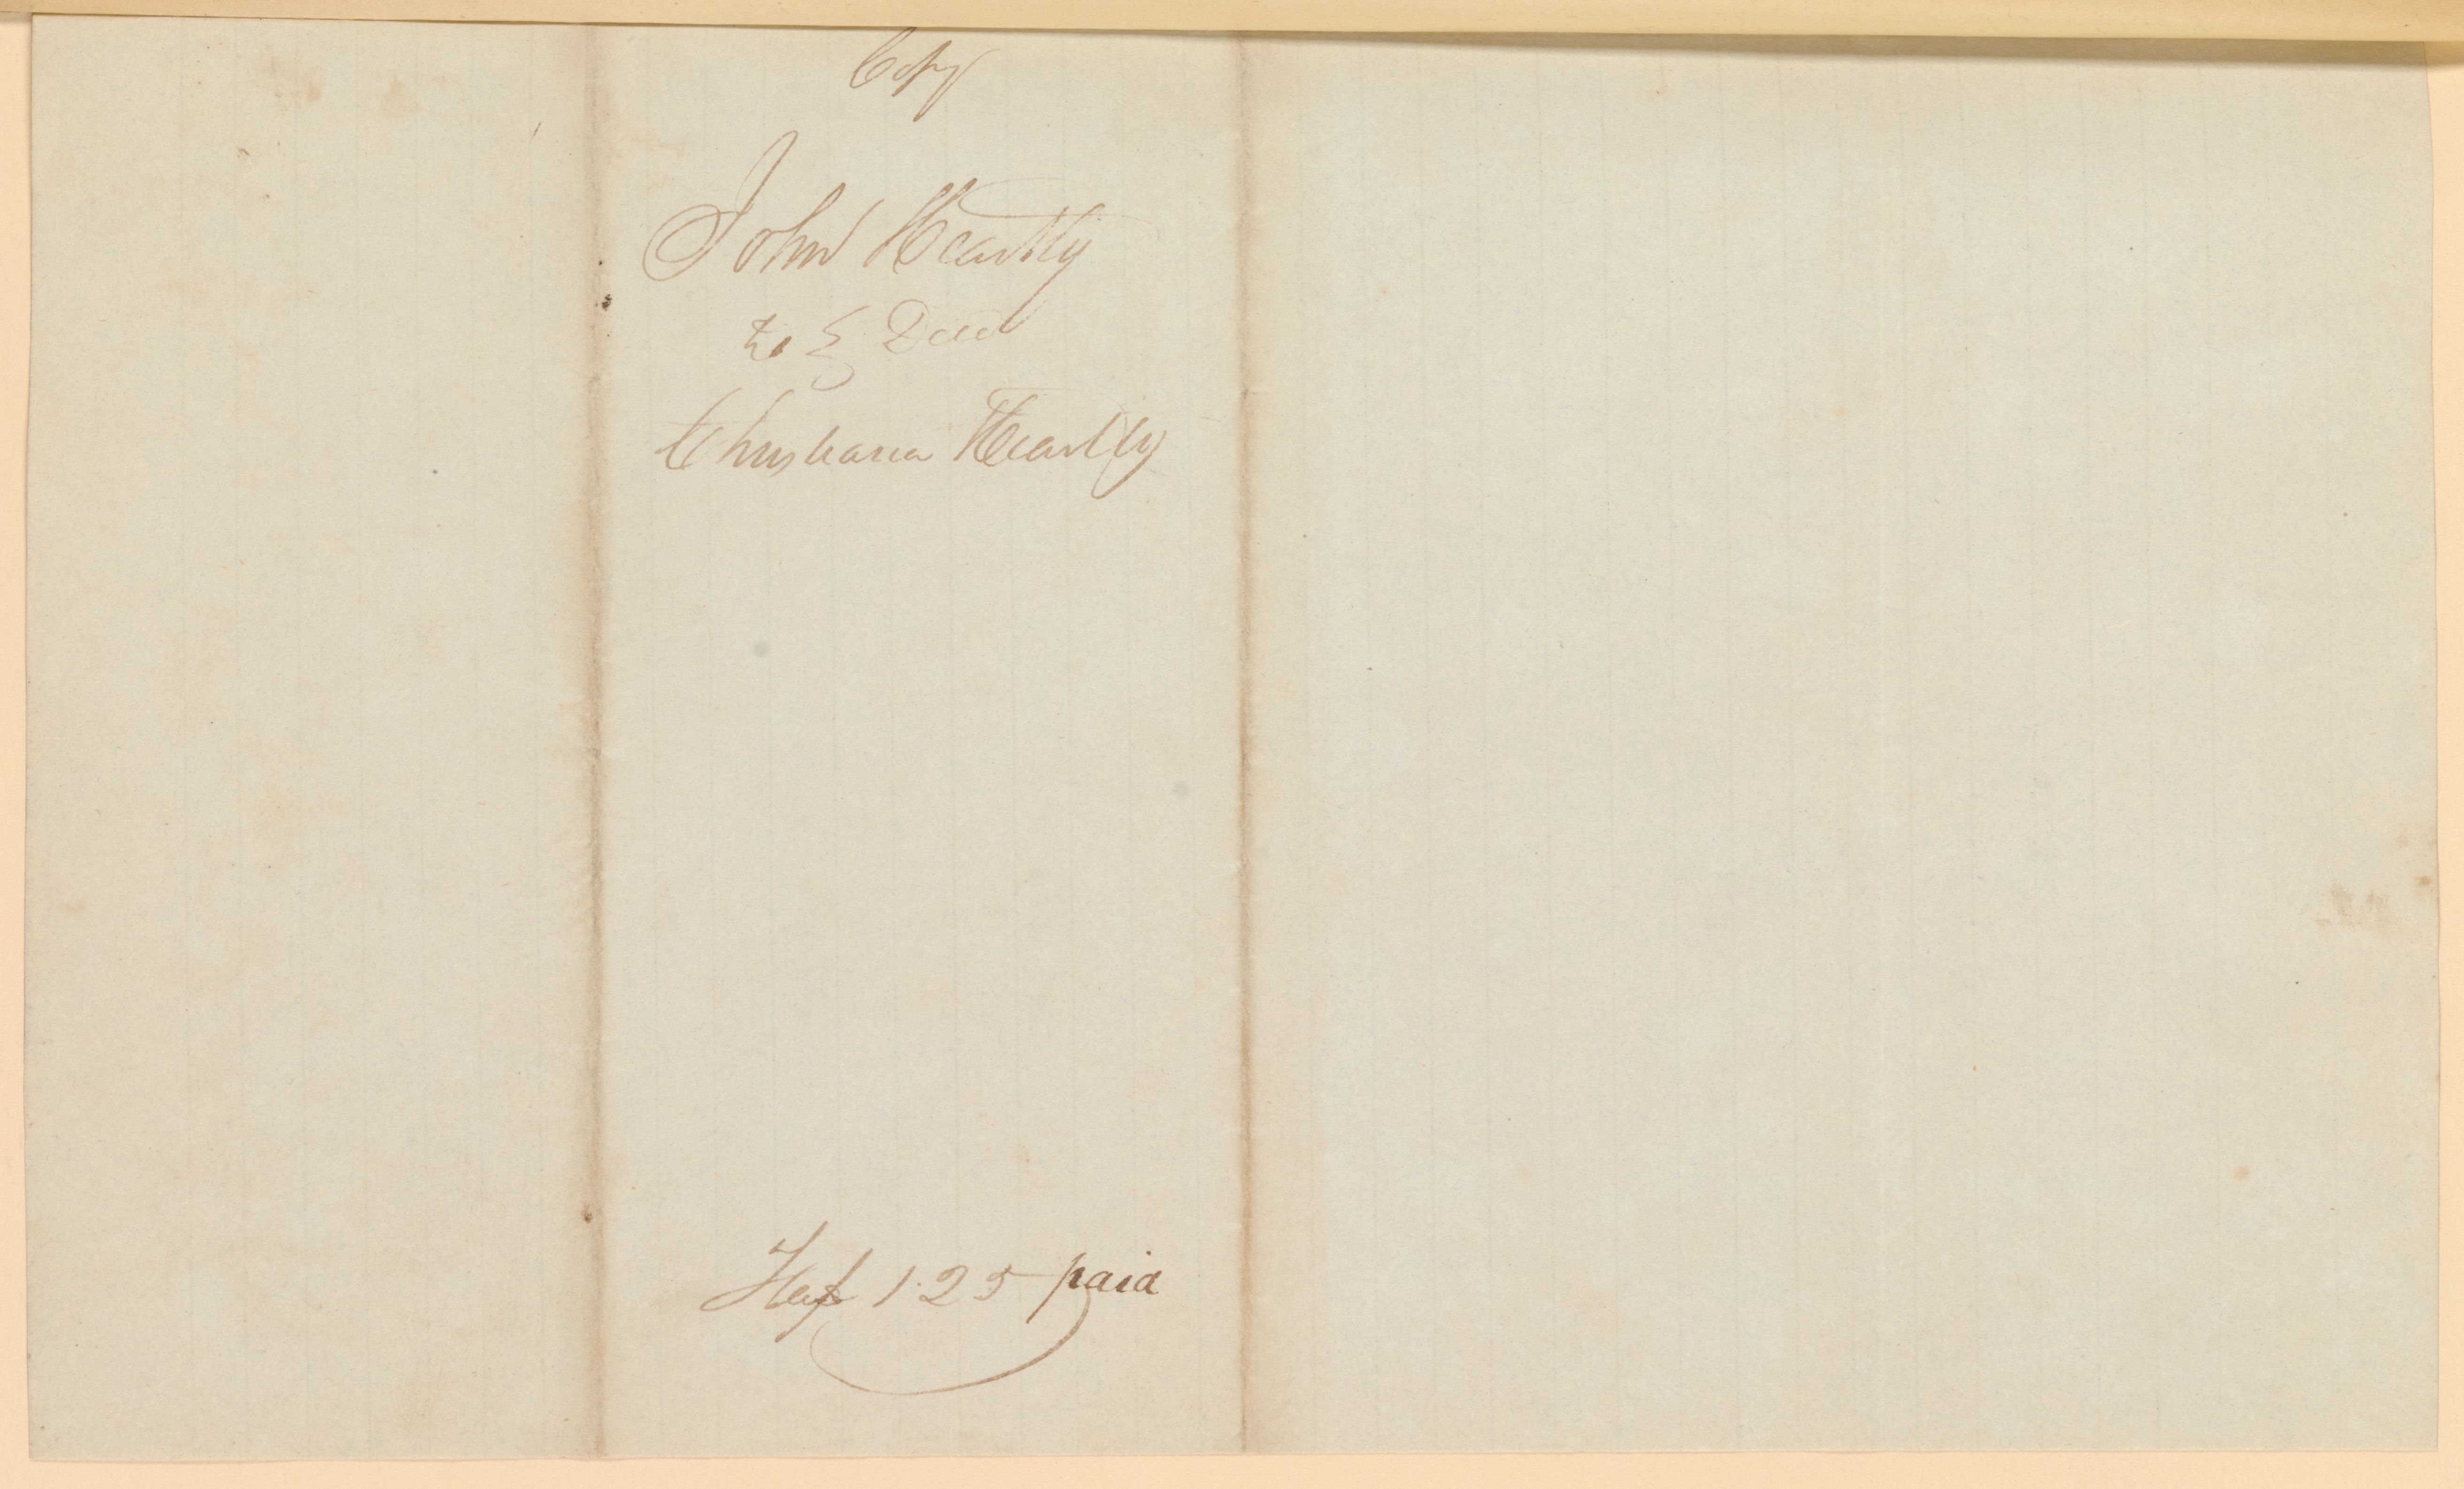 Copy
John Heartly
to } Deed
Christiana Heartly
1.25 paid